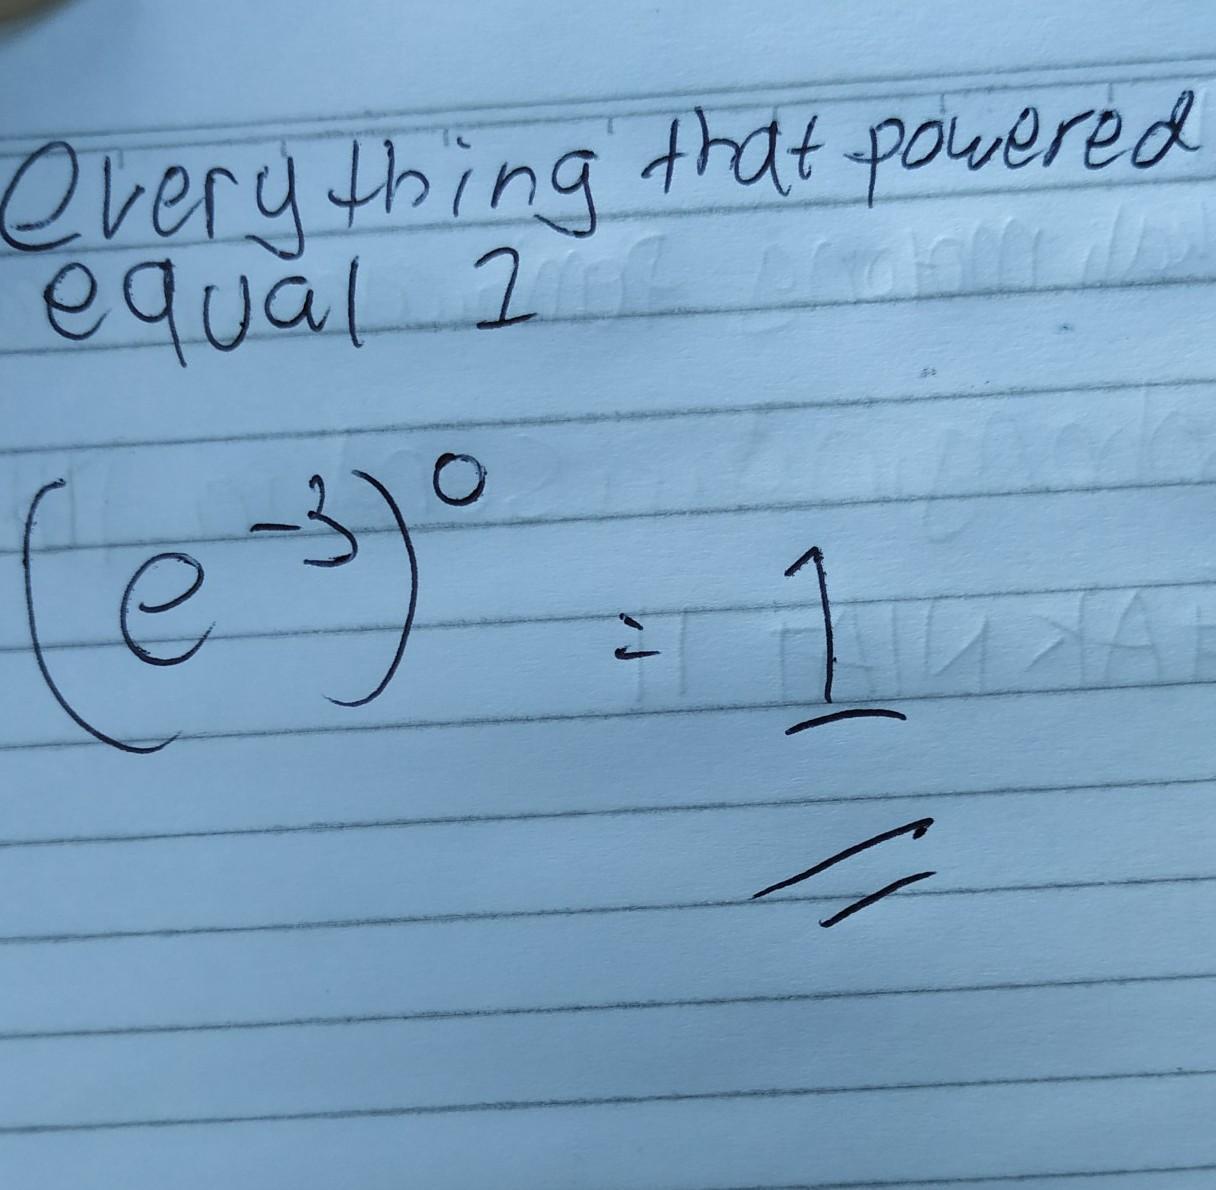 Everything that powered
equal 1
(e⁻³)⁰ = 1